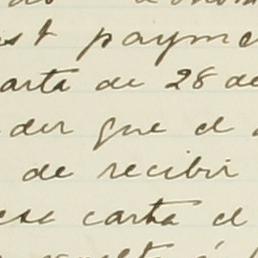 payme
arta de 28 de
der que el
de recibir
ese carta el